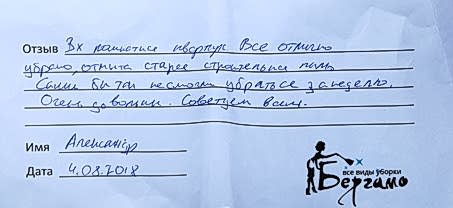 Отзыв Вх комнатная квартира Все отлично
убрано, отмыта старая строительная пыль
Сами бы так не смогли убраться за неделю.
Очень довольны. Советуем всем.
Имя Александр
Дата 4.08.2018
все виды уборки
Бергамо